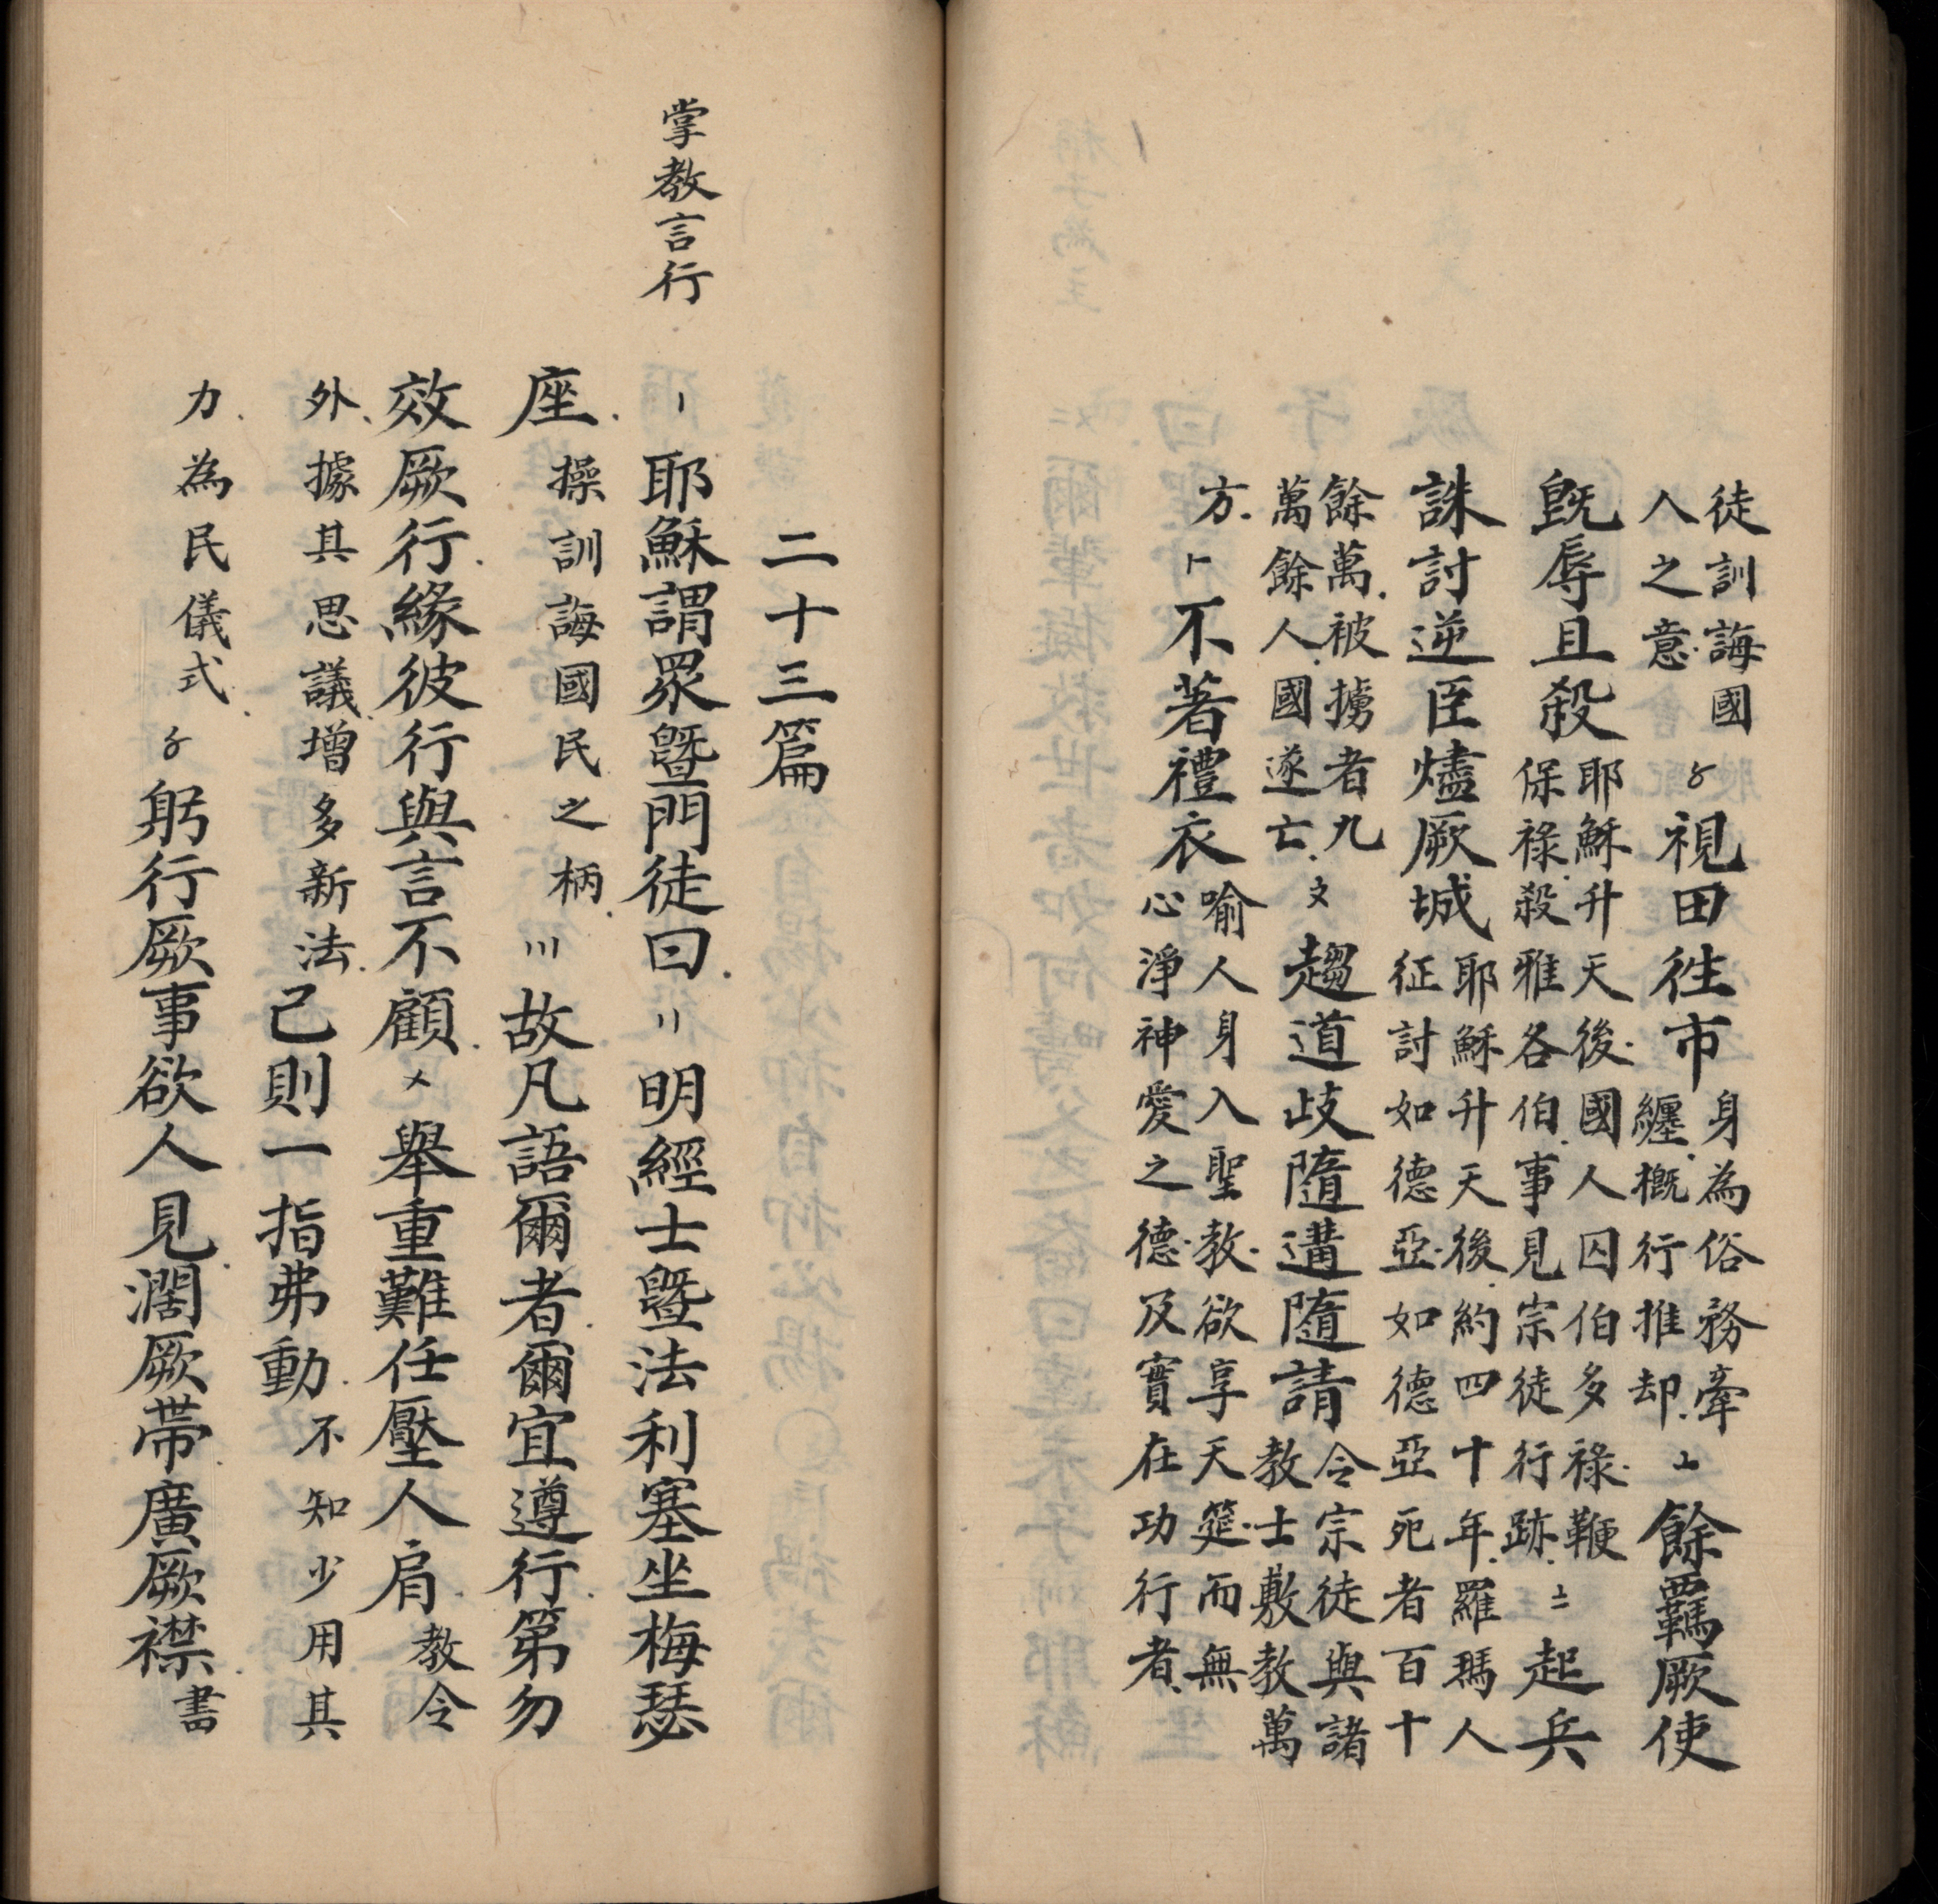 徒訓誨國
人之意
〥視田徃市
身為俗務牽
纏概行推却
〦餘覊厥使
既辱且殺
耶穌升天後國人囚伯多祿鞭
保祿殺雅各伯事見宗徒行跡
〧起兵
誅討逆臣燼厥城
耶穌升天後約四十年羅瑪人
征討如德亞如德亞死者百十
餘萬被擄者九
萬餘人國遂亡
〩趨道歧隨遘隨請
令宗徒與諸
教士敷教萬
方
不著禮衣
喻人身入聖教欲享天筵而無
心淨神愛之德及實在功行者
二十三篇
掌教言行
〡耶穌謂眾曁門徒曰〢明經士曁法利塞坐梅瑟
座操訓誨國民之柄〣故凡語爾者爾宜遵行第勿
效厥行緣彼行與言不顧〤舉重難任壓人肩教令
外據其思議增多新法己則一指弗動不知少用其
力為民儀式〥躬行厥事欲人見濶厥帶廣厥襟書